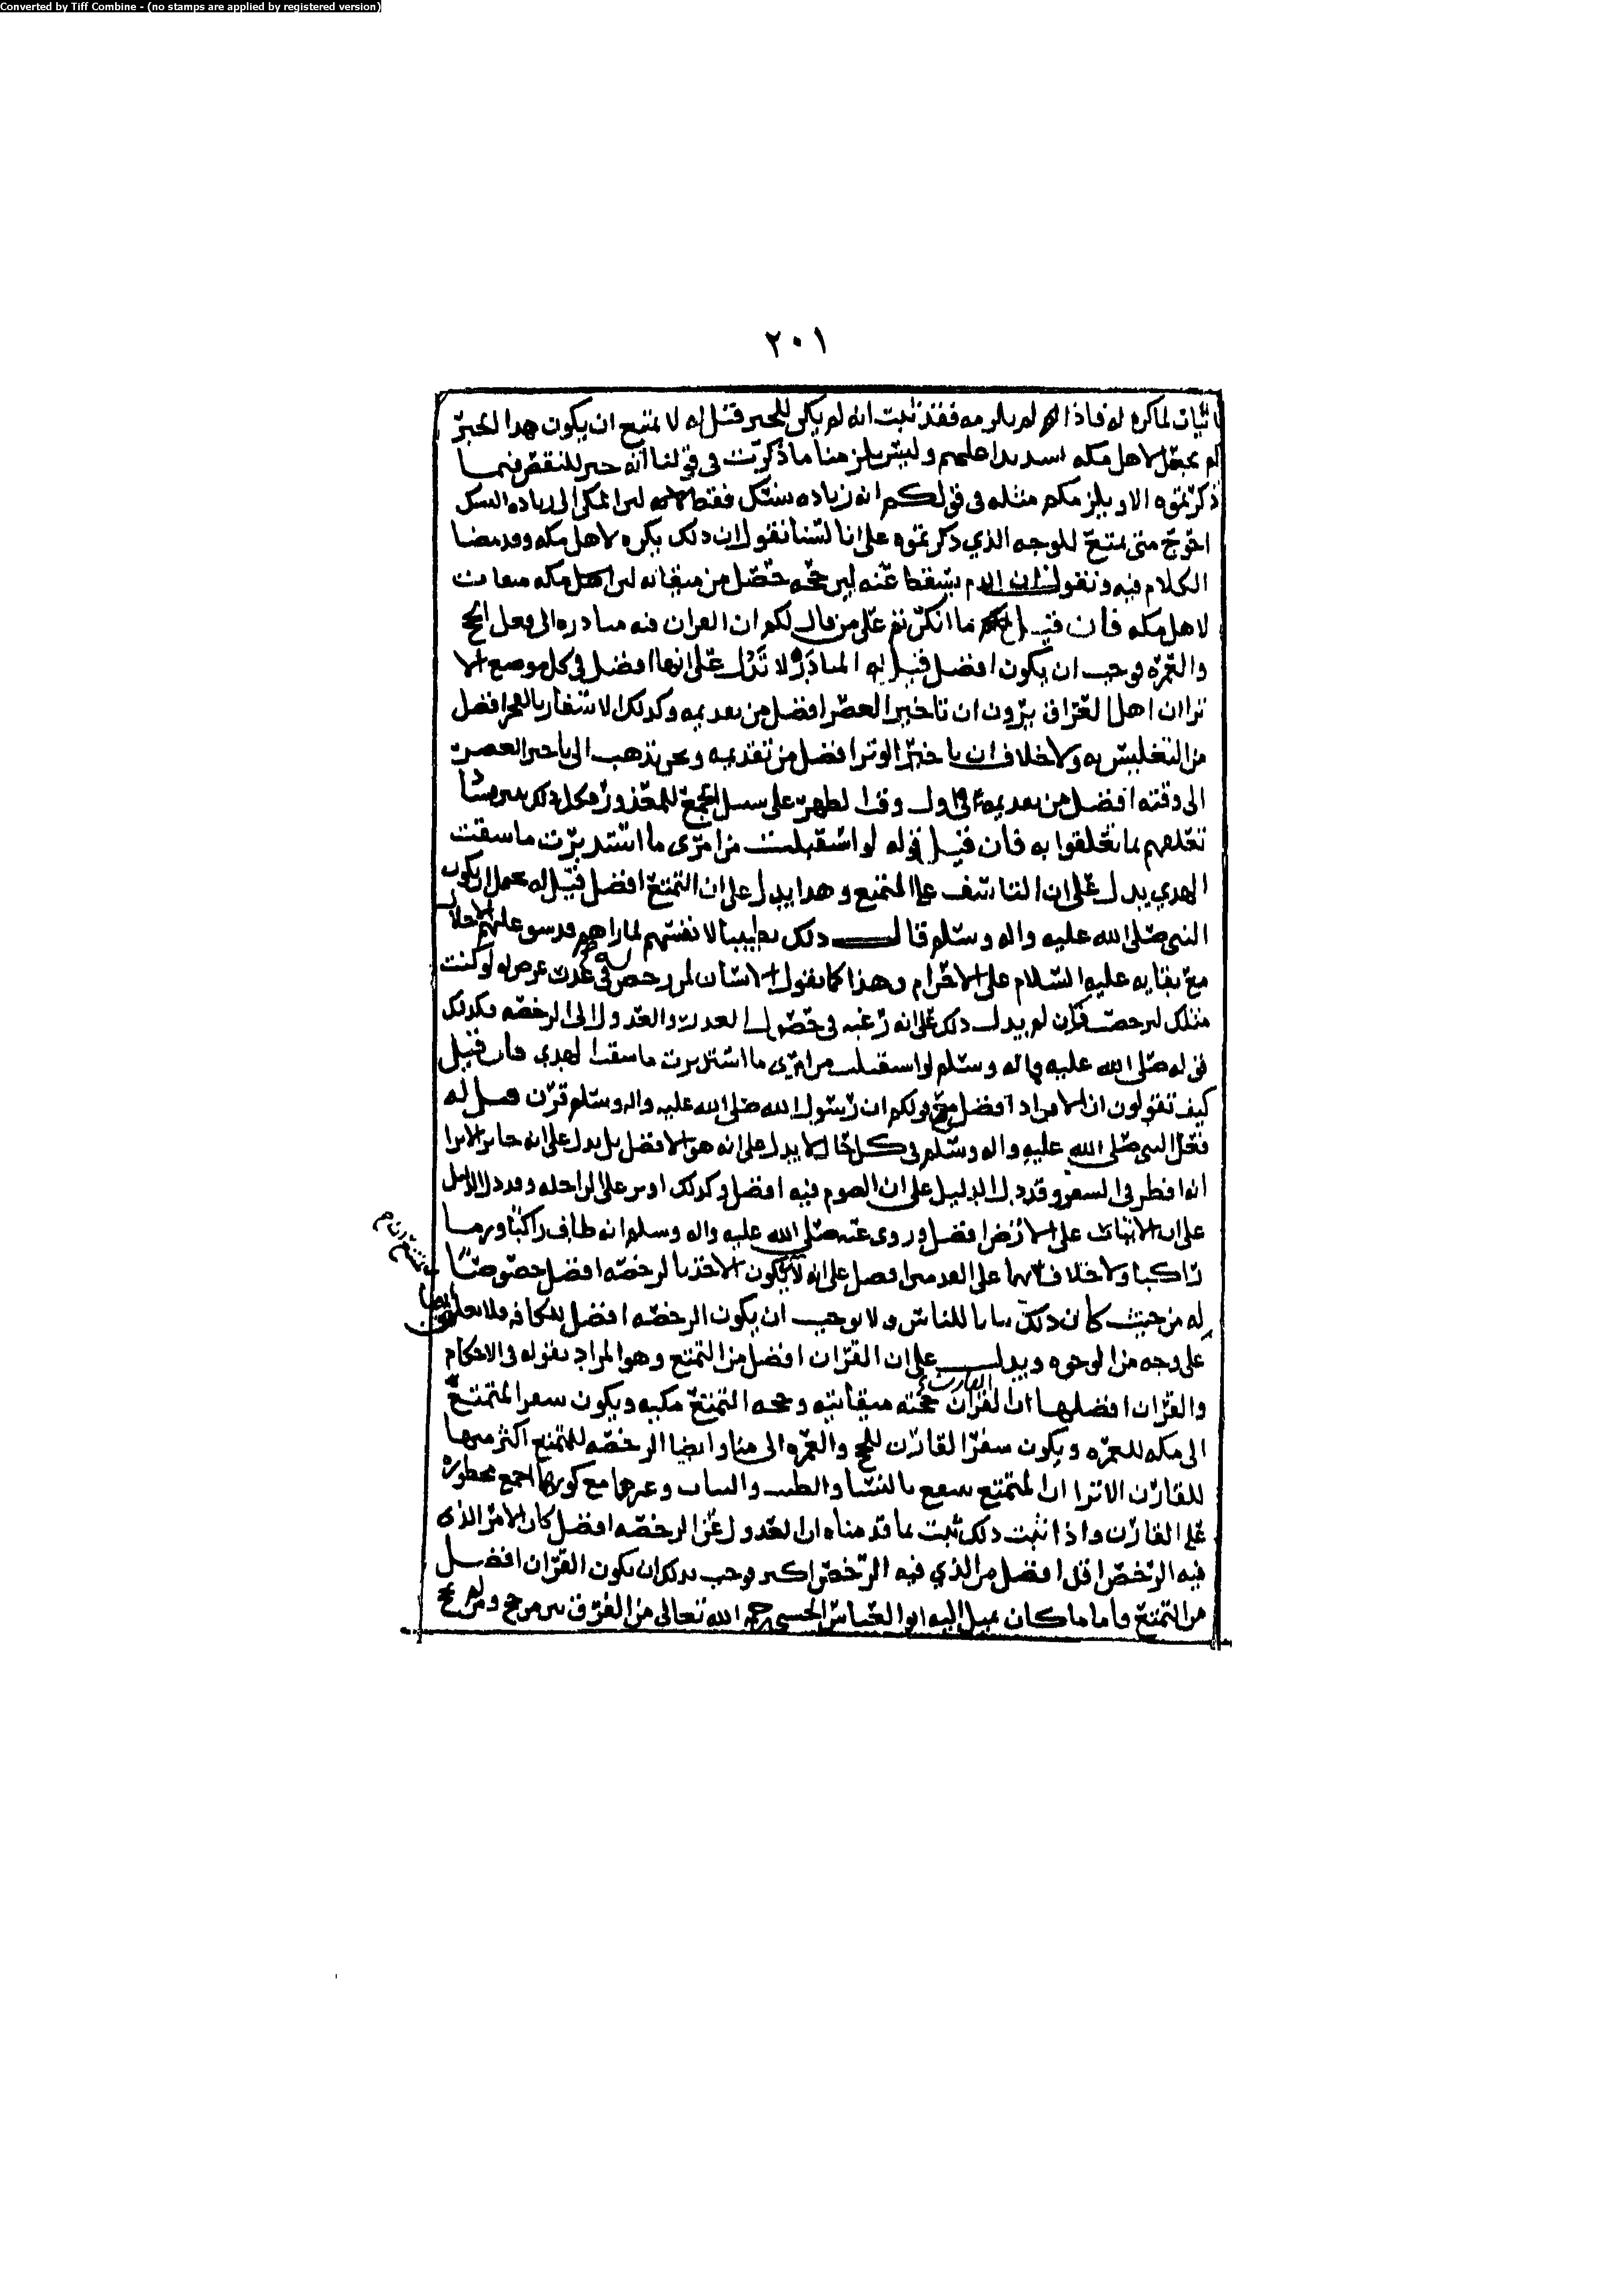 Converted by Tiff Combine - (no stamps are applied by registered version)
٢٠١
لما كره له فاذا لم يلزمه فقد ثبت انه لم يكن للجبر قيل له لا يمتنع ان يكون هذا الجبر
لم يجعل لاهل مكه وليس يلزمنا ما ذكرت في قولنا انه جبر للنقص فيما
ذكرتموه الا ويلزمكم مثله في قولكم انه زياده نسك فقط لانه ليس المكي الى زياده النسك
احوج متى تمتع للوجه الذي ذكرتموه على انا لسنا نقول ان ذلك يكره لاهل مكه وقد مضا
الكلام فيه ونقول ان الدم يسقط عنه لان حجه حصل من ميقاته لان اهل مكه ميقات
لاهل مكه فان قيل ما انكرتم على من قال لكم ان القران فيه مبادره الى فعل الحج
والعمره فوجب ان يكون افضل قيل له المبادره لا تدل على انها افضل في كل موضع الا
ترا ان اهل العراق يرون ان تاخير العصر افضل من تقديمه وكذلك الاسفار بالفجر افضل
من التغليس به ولا خلاف ان تاخير الوتر افضل من تقديمه ونحن نذهب الى تاخير العصر
الى وقته افضل من تقديمه في اول وقت الظهر على سبيل الجمع للمعذور فكل ذلك
تعلقهم بما تعلقوا به فان قيل قوله لو استقبلت من امري ما استدبرت ما سقت
الهدي يدل على ان التاسف على التمتع وهذا يدل على ان التمتع افضل قيل له يحمل ان يكون
النبي صلى الله عليه واله وسلم قال ذلك تطييبا لانفسهم لما راهم قد شق عليهم الاحلال
مع بقايه عليه السلام على الاحرام وهذا كما يقول الانسان لمن رخص في عذر عرض له لو كنت
مثلك لترخصت فان لم يدل ذلك على انه رغبه في حصول العذر والعدول الى الرخصه فكذلك
قوله صلى الله عليه واله وسلم لو استقبلت من امري ما استدبرت ما سقت الهدي فان قيل
كيف تقولون ان الافراد افضل مع قولكم ان رسول الله صلى الله عليه واله وسلم قرن قيل له
فعل النبي صلى الله عليه واله وسلم في كل حال لا يدل على انه هو الافضل بل يدل على انه جائز الا ترا
انه افطر في السفر وقد دل الدليل على ان الصوم فيه افضل وكذلك اوتر على الراحله وقد دل الدليل
على ان الاتيان على الارض افضل وروى عنه صلى الله عليه واله وسلم انه طاف راكبا ورما
راكبا ولا خلاف انهما على القدمين افضل على انه لا يكون الاخذ بالرخصه افضل خصوصا
له من حيث كان ذلك بيانا للناس ولا يوجب ان يكون الرخصه افضل للكافه فلا
على وجه من الوجوه ويدل على ان القران افضل من التمتع وهو المراد بقوله في الاحكام
والقران افضلها ان القران حجته ميقاتيه وحجه التمتع مكيه ويكون سفر المتمتع
القارن
الى مكه للعمره ويكون سفر القارن للحج والعمره الى منا وايضا الرخصه للمتمتع اكثر منها
للقارن الا ترا ان المتمتع يتمتع بالنسا والطيب والثياب وغيرها مع كونها اجمع محظوره
على القارن واذا ثبت ذلك ثبت بما قدمناه ان العدول عن الرخصه افضل كان الامر الذي
فيه الرخص اقل افضل من الذي فيه الرخص اكثر فوجب بذلك ان يكون القران افضل
من التمتع واما ما كان يميل اليه ابو العباس الحسني رحمه الله تعالى من الفرق بين من حج ومن لم يحج